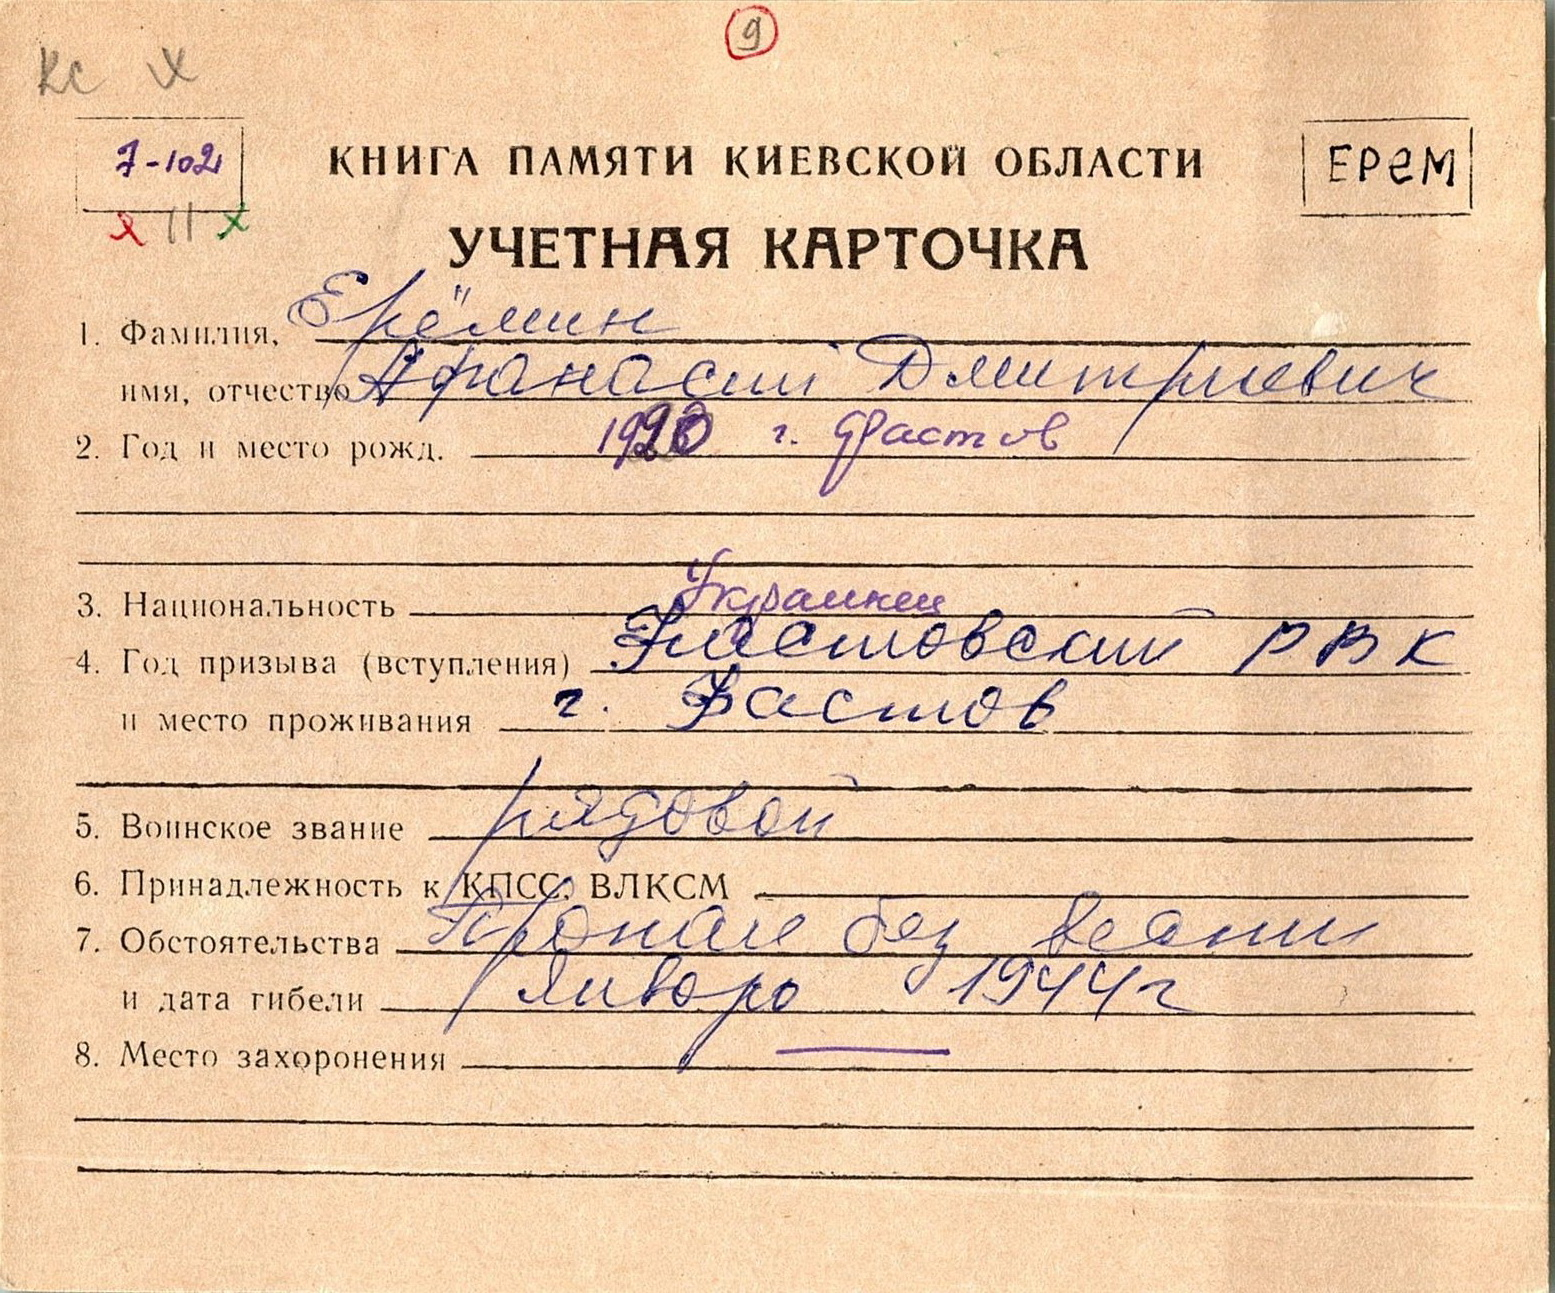 9
Кс X
7-102
КНИГА ПАМЯТИ КИЕВСКОЙ ОБЛАСТИ
ЕРЕМ
х 11 х
УЧЕТНАЯ КАРТОЧКА
1. Фамилия, Ерёмин
имя, отчество Афанасий Дмитриевич
2. Год и место рожд. г. Фастов
3. Национальность Украинец
4. Год призыва (вступления) Фастовский РВК
и место проживания г. Фастов
5. Воинское звание рядовой
6. Принадлежность к КПСС, ВЛКСМ
7. Обстоятельства Пропал без вести
и дата гибели январь 1944г
8. Место захоронения —